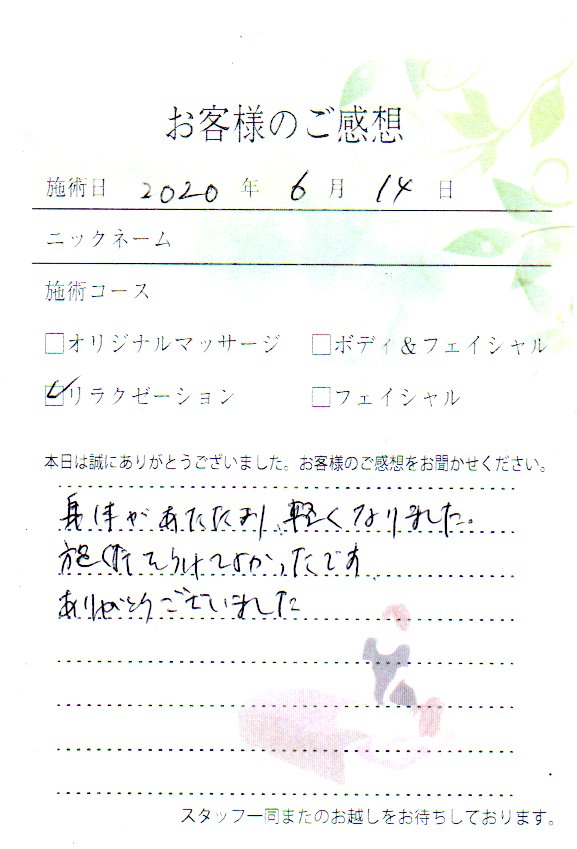 お客様のご感想
施術日 2020 年 6 月 14 日
ニックネーム
施術コース
□オリジナルマッサージ □ボディ&フェイシャル
☑リラクゼーション □フェイシャル
本日は誠にありがとうございました。お客様のご感想をお聞かせください。
身体があたたまり、軽くなりました。
施術をうけてよかったです
ありがとうございました
スタッフ一同またのお越しをお待ちしております。